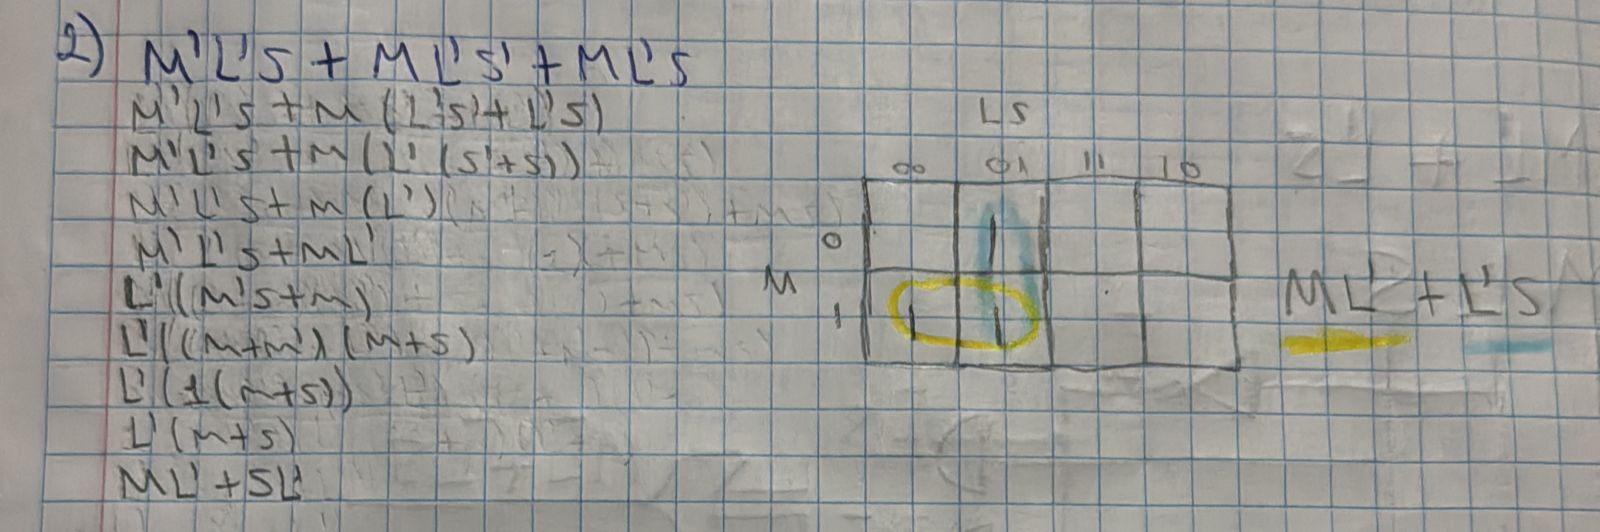 2) M'L'S + ML'S' + ML'S
M'L'S + M (L'S' + L'S)
M'L'S + M (L' (S'+S))
M'L'S + M (L')
M'L'S + ML'
L'((M'S+M)
L'((M+M') (M+S)
L'(1(M+S))
L'(M+S)
ML' + SL'
LS
00 01 11 10
0 1
M
1 1 1
ML' + L'S